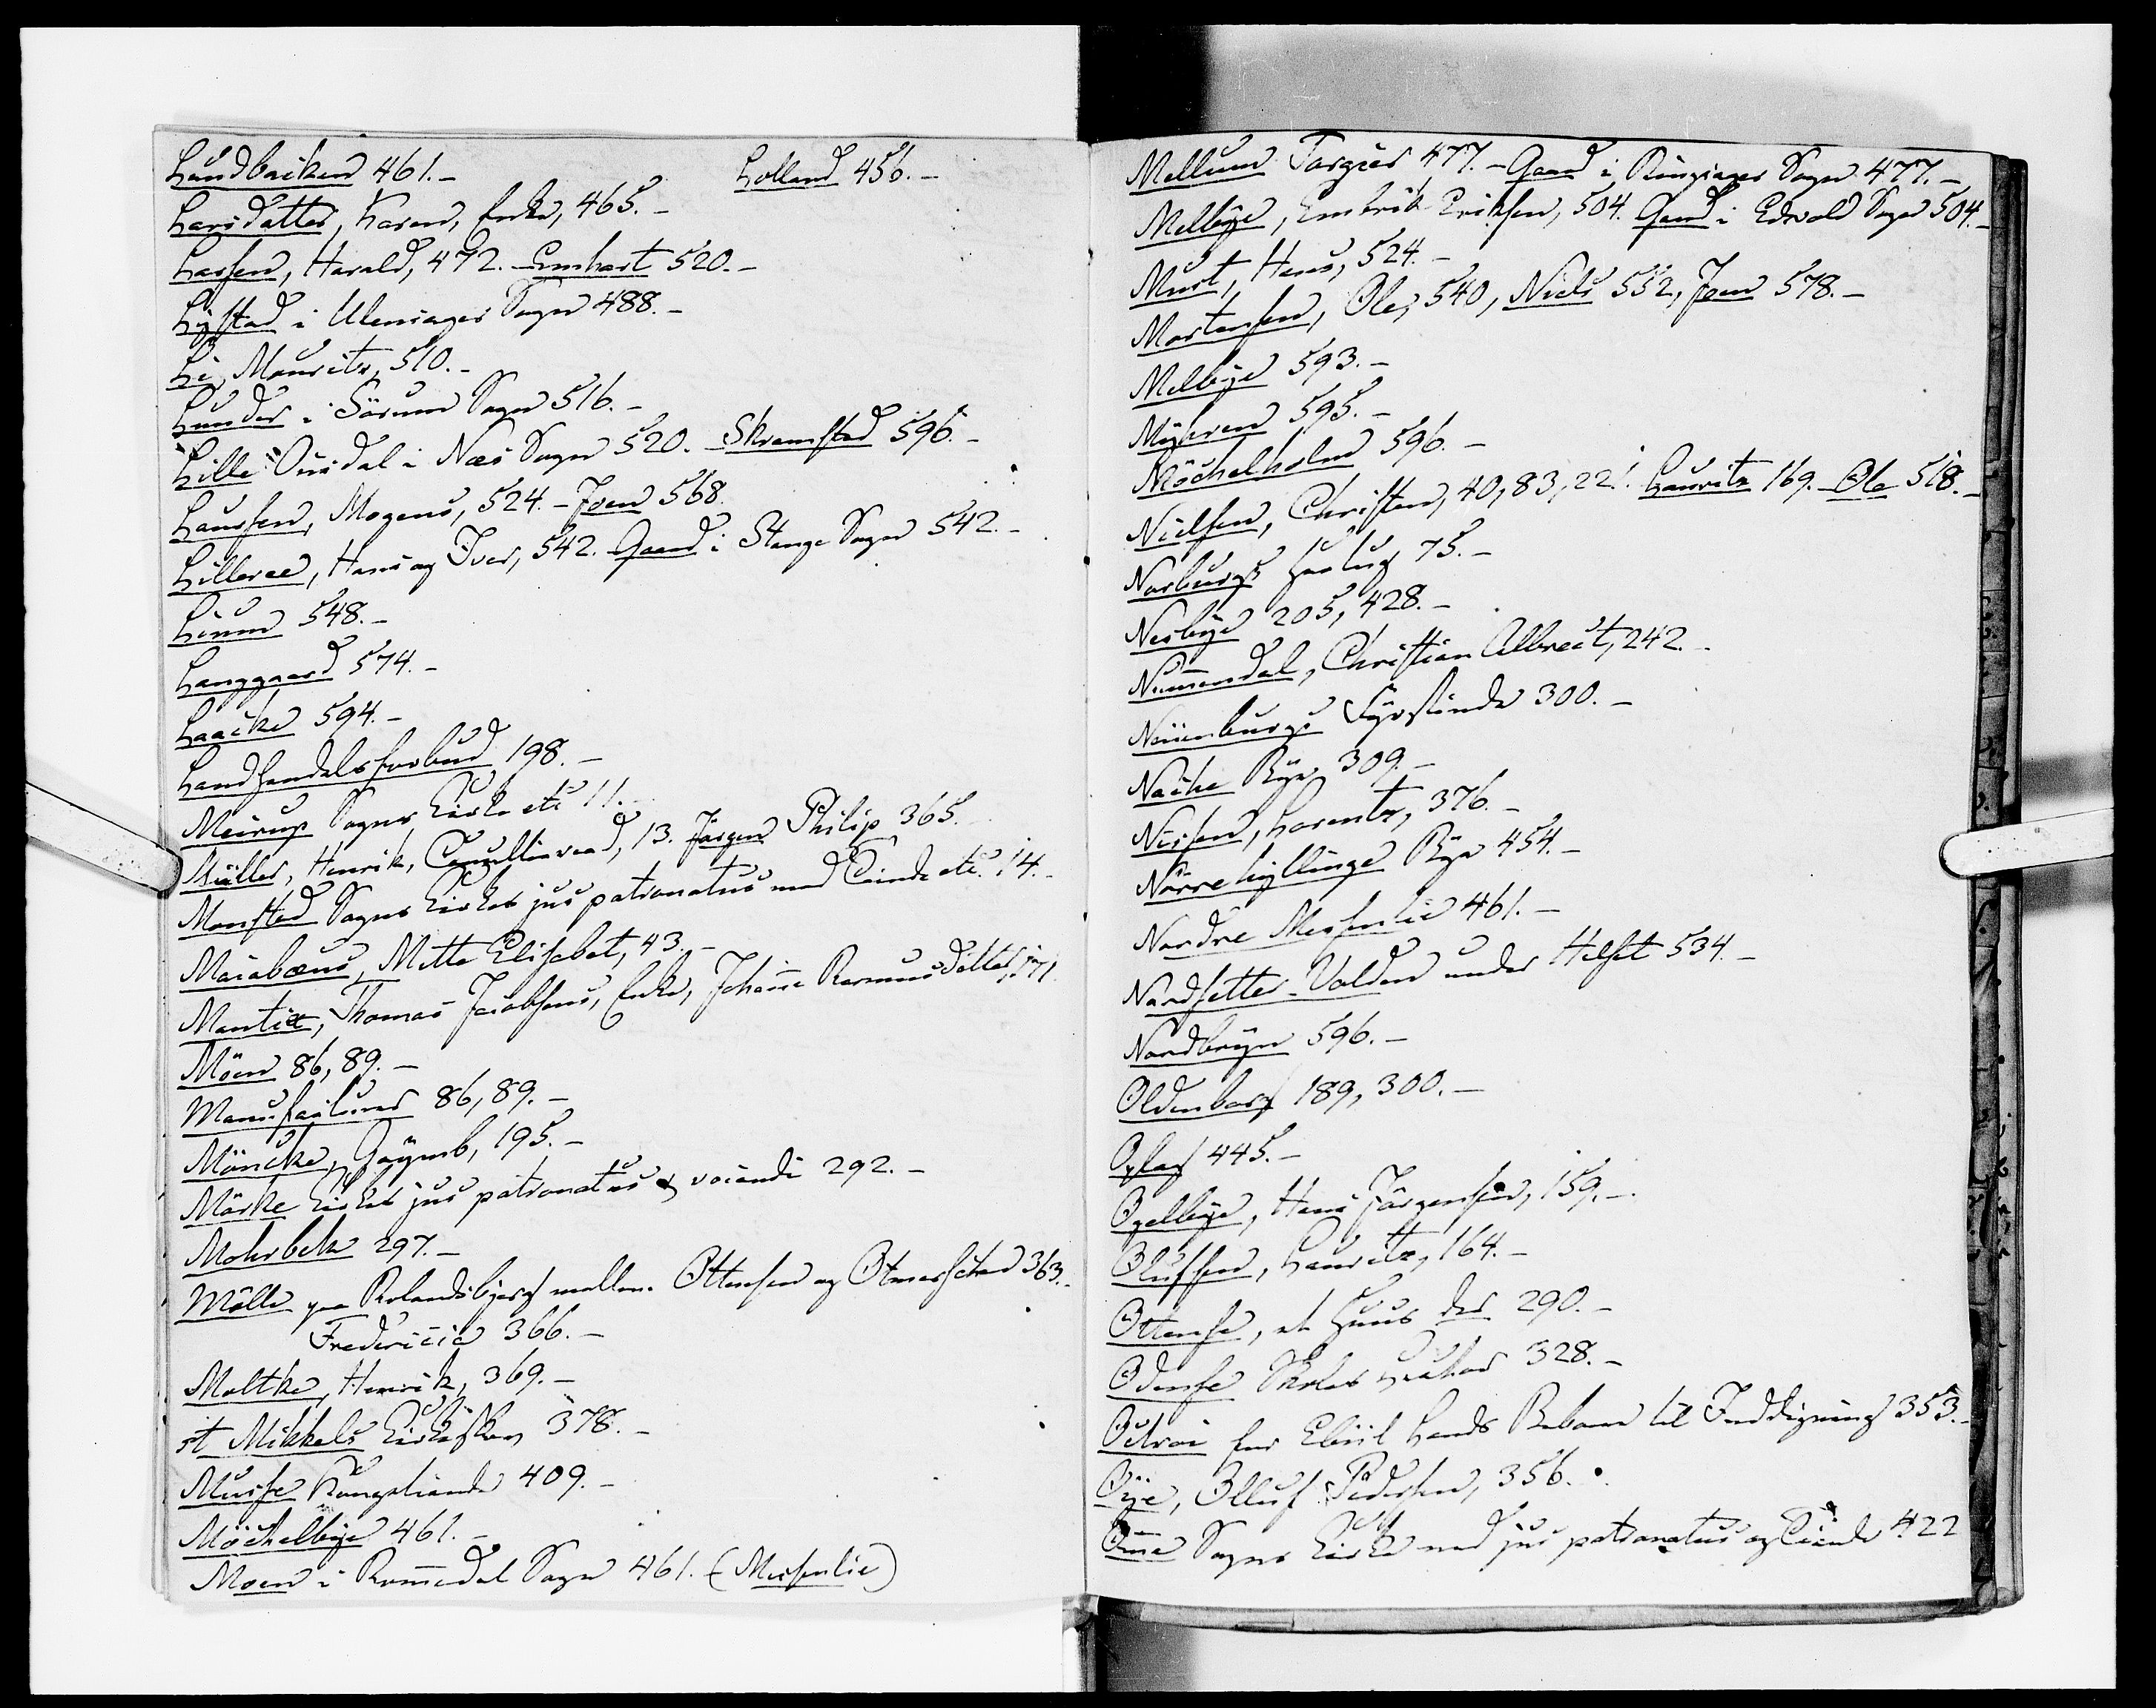 Lundbacken 461.– Lolland 456.–
Larsdatter, Karen, Enke, 465.–
Larsen, Harald, 472. – Emhart 520.–
Lystad i Ulensager Sogn 488.–
Li, Mouritz, 510.–
Lunder i Sörum Sogn 516.–
"Lille" Ousdal i Næs Sogn 520. – Skramstad 596.–
Laursen, Mogens, 524. – Joen 568.
Lilleræe, Hans og Iver, 542. Gaard i Stange Sogn 542.–
Liumd 548.–
Langgaard 574.–
Laacke 594.–
Landhandelsforbud 198.–
Meirup Sogns Kirke etc 11.
Müller, Henrik, Cancelliraad, 13. Jörgen Philip 365.
Monsted Sogns Kirkes jus patronatus med Tiende etc. 14.–
Maiabæus, Mette Elisabet, 43.–
Mantix, Thomas Jacobsens, Enke, Johañe Rasmusdatter, 171
Möen 86, 89.–
Manufacturer 86, 89.–
Müncke, Gaÿmb, 195.–
Mörke Kirkes jus patronatus & vocandi 292.–
Mohrbek 297.–
Mölle paa Rolandsbjerg mellem Ottensen og Otmarschen 363.–
Fredericia 366.–
Moltke, Henrik, 369.–
st Mikkels Kirkeskov 378.–
Musse Kongetiende 409.–
Möchelbye 461.–
Moen i Rom̄edal Sogn 461. (Messenlie)
Mellum Torgier 477. – Gaard i Ringsager Sogn 477.–
Melbye, Embrik Eriksen, 504. Gaard i Edvold Sogn 504.–
Must, Hans, 524.–
Mortensen, Ole, 540, Niels 552, Joen 578.–
Melbye 593.–
Myhren 595.–
Möchelholm 596.–
Nielsen, Christen, 40, 83, 221. Lauritz 169. – Ole 518.–
Norburgs 75.–
Nesbye 205, 428.–
Num̄endal, Christian Albrect, 242.–
Nüenburgs Fyrstinde 300.–
Nache Bye 309.–
Nissen, Lorentz, 376.–
Nörrehyllinge Bye 454.–
Nordre Messenlie 461.–
Nordsetter-Volden under Helset 534.–
Nordbryn 596.–
Oldenborg 189, 300.–
Oplag 445.–
Ogelbye, Hans Jörgensen, 159.–
Oluffsen, Lauritz, 164.–
Ottense, et Huus der 290.–
Odense Skoles 328.–
Octroi for Lands Beboere til Inddigning 353.–
Oÿe, Olluf Pedersen, 356.
Om̄e Sogns Kirke med jus patronatus og Tiende 422